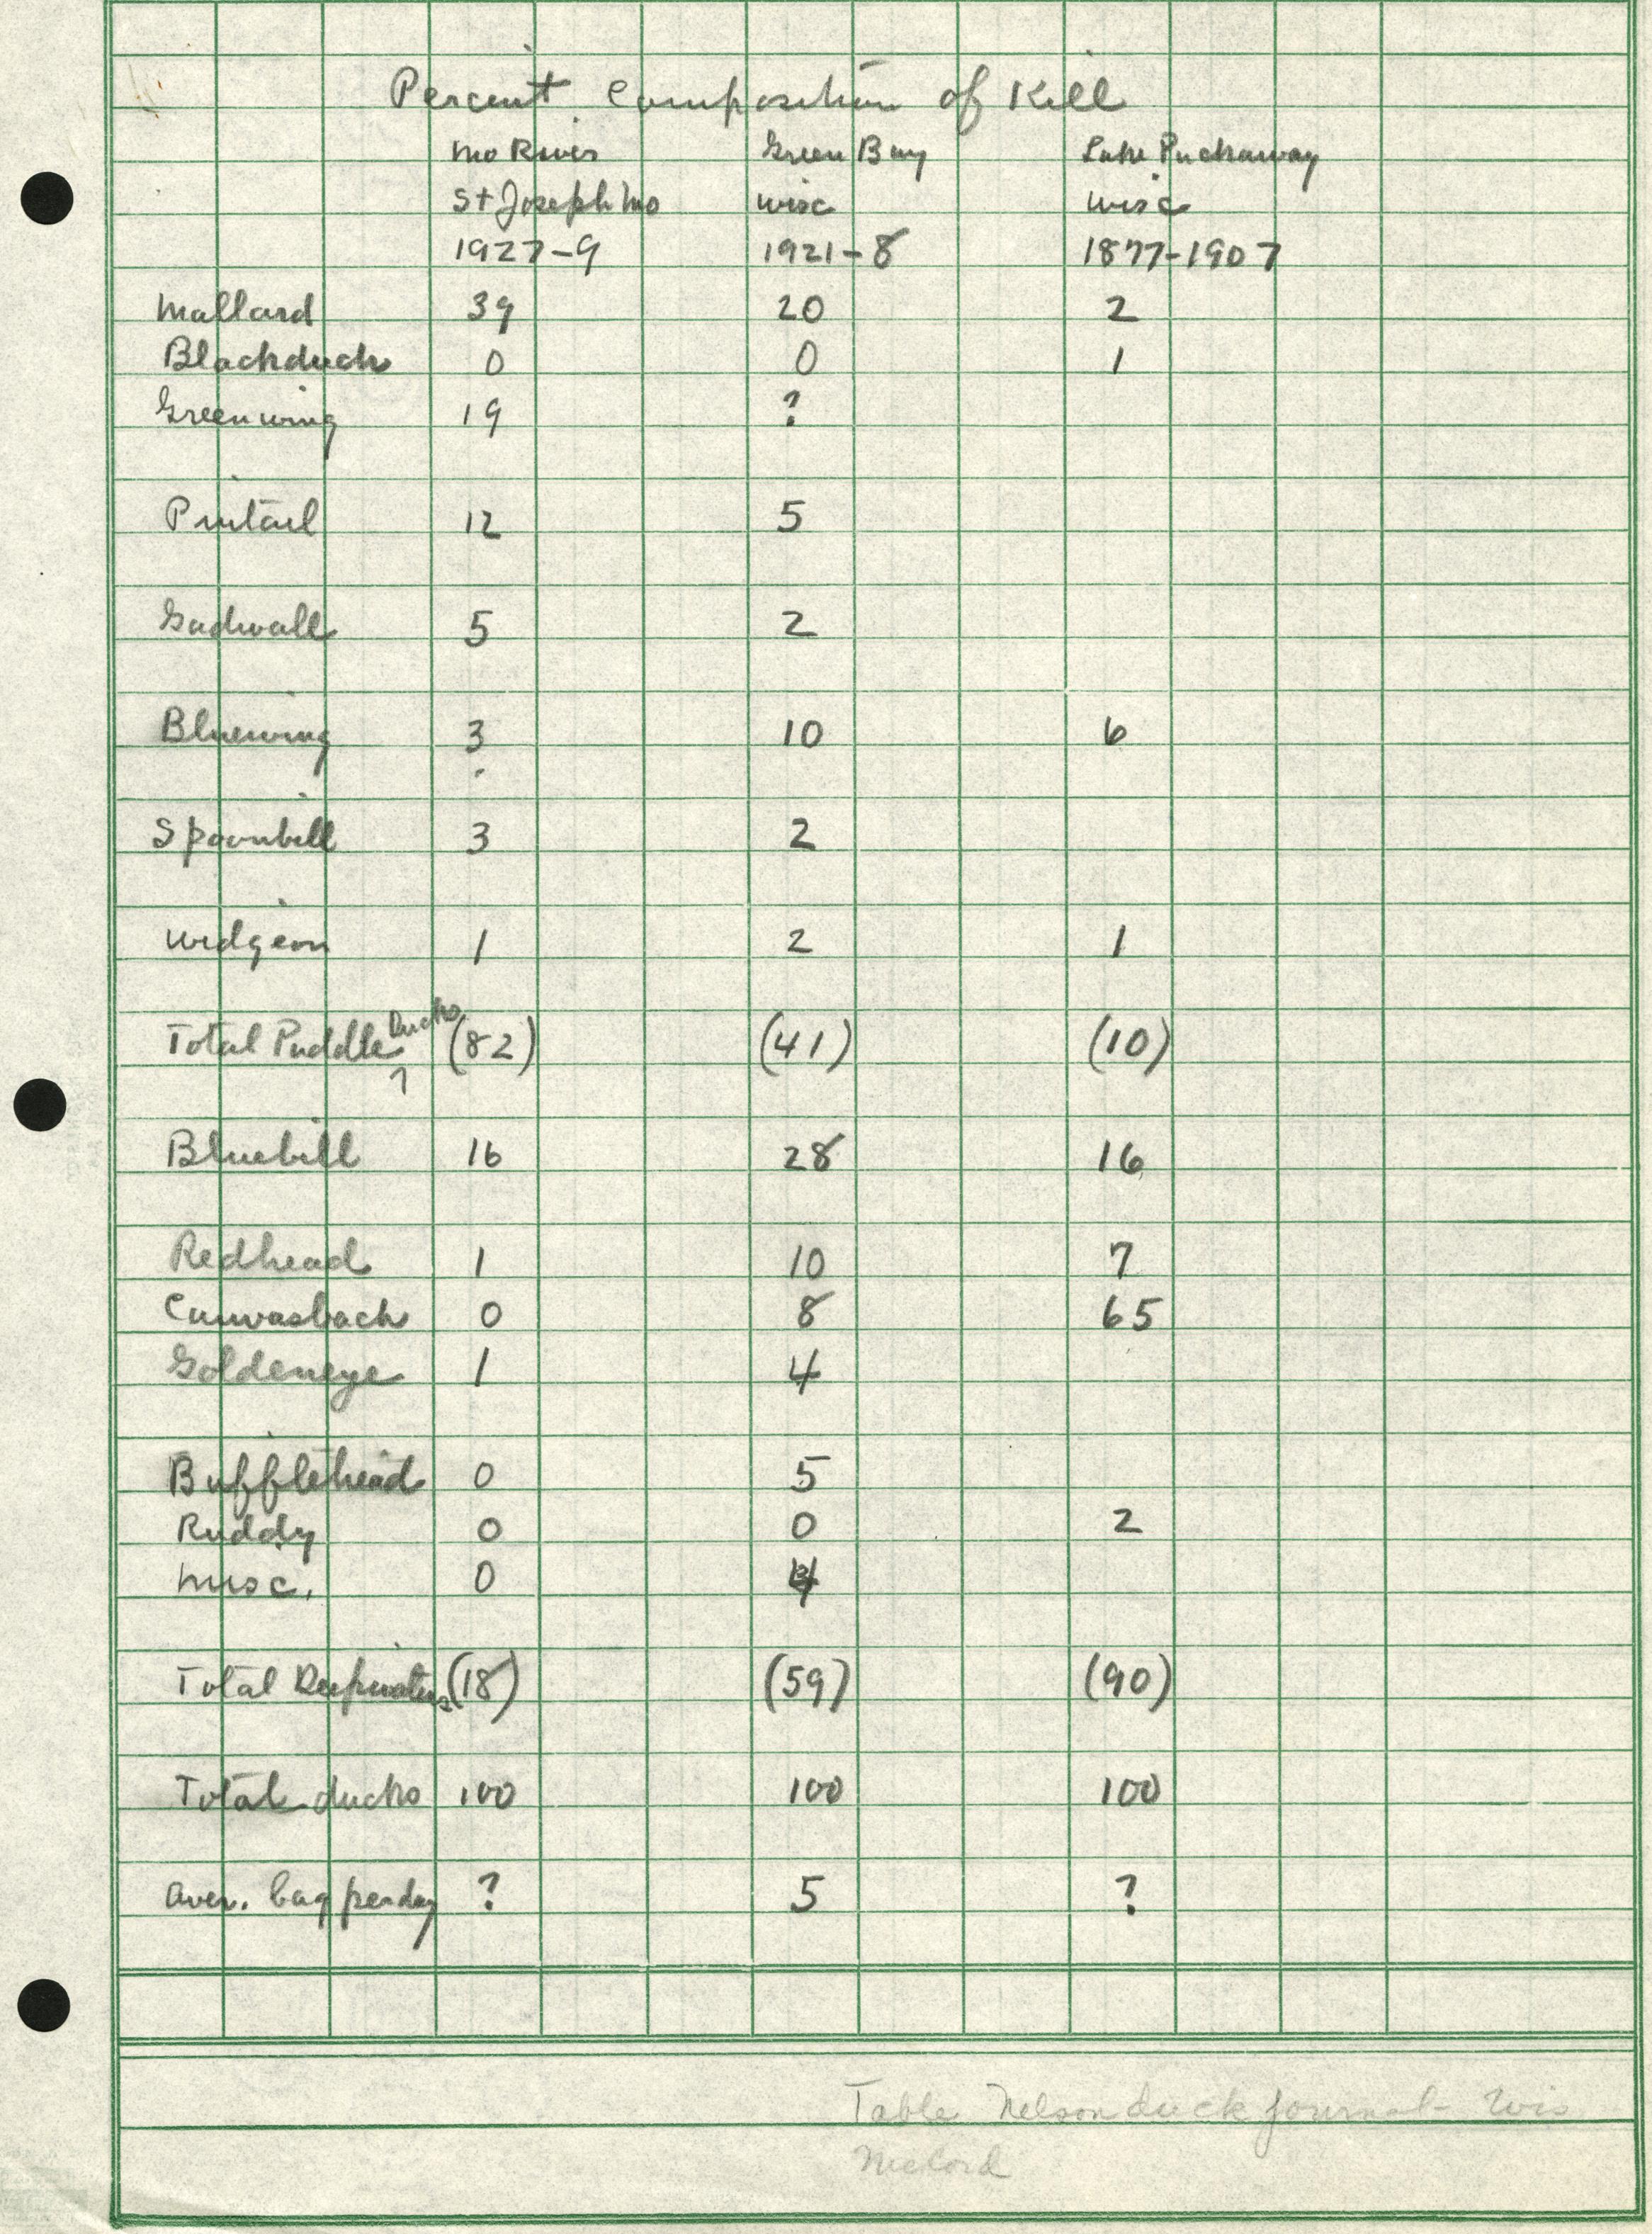 Percent Composition of Kill
Mo River Green Bay Lake Puckaway
St Joseph Mo Wisc Wisc
1927-9 1921-8 1877-1907
Mallard 39 20 2
Blackduck 0 0 1
Greenwing 19 ?
Pintail 12 5
Gadwall 5 2
Bluewing 3 10 6
Spoonbill 3 2
Widgeon 1 2 1
Total Puddle Ducks (82) (41) (10)
Bluebill 16 28 16
Redhead 1 10 7
Canvasback 0 8 65
Goldeneye 1 4
Bufflehead 0 5
Ruddy 0 0 2
Misc. 0 4
Total Deepwaters (18) (59) (90)
Total ducks 100 100 100
Aver. bag per day ? 5 ?
Table Nelson duck journal - Wis